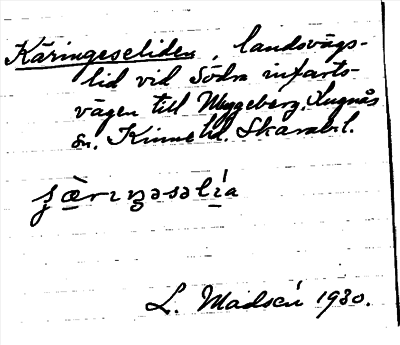 Käringeseliden, landsvägs-
lid vid Södra infarts-
vägen till Myggeberg, Lugnås
sn. Kinne hd. Skarab.l.
ʂæ̀rɪŋəsəlía
L. Madsén 1930.